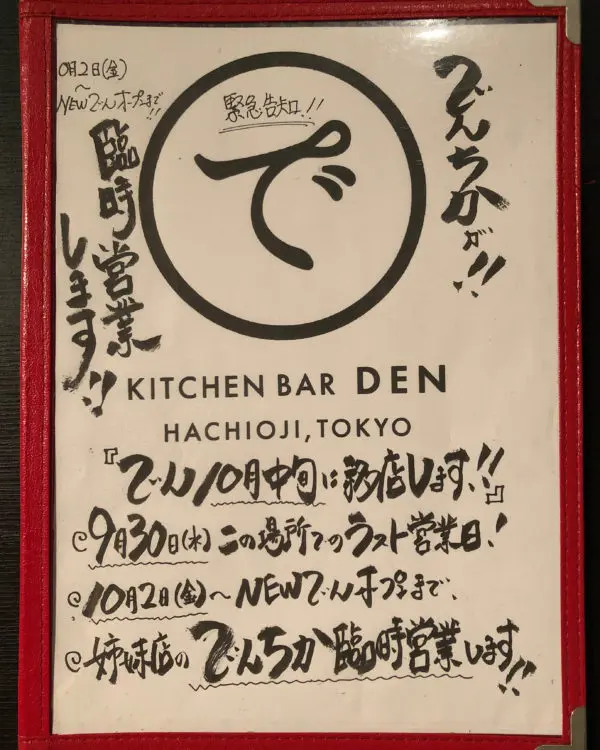 でんちかが!!
緊急告知!!
10月2日(金)
～
NEWでんオープンまで!!
臨時営業
します!!
で
KITCHEN BAR DEN
HACHIOJI, TOKYO
『でん10月中旬に移店します!!』
@9月30日(水)この場所でのラスト営業日!
@10月2日(金)～NEWでんオープンまで、
@姉妹店のでんちか臨時営業します!!